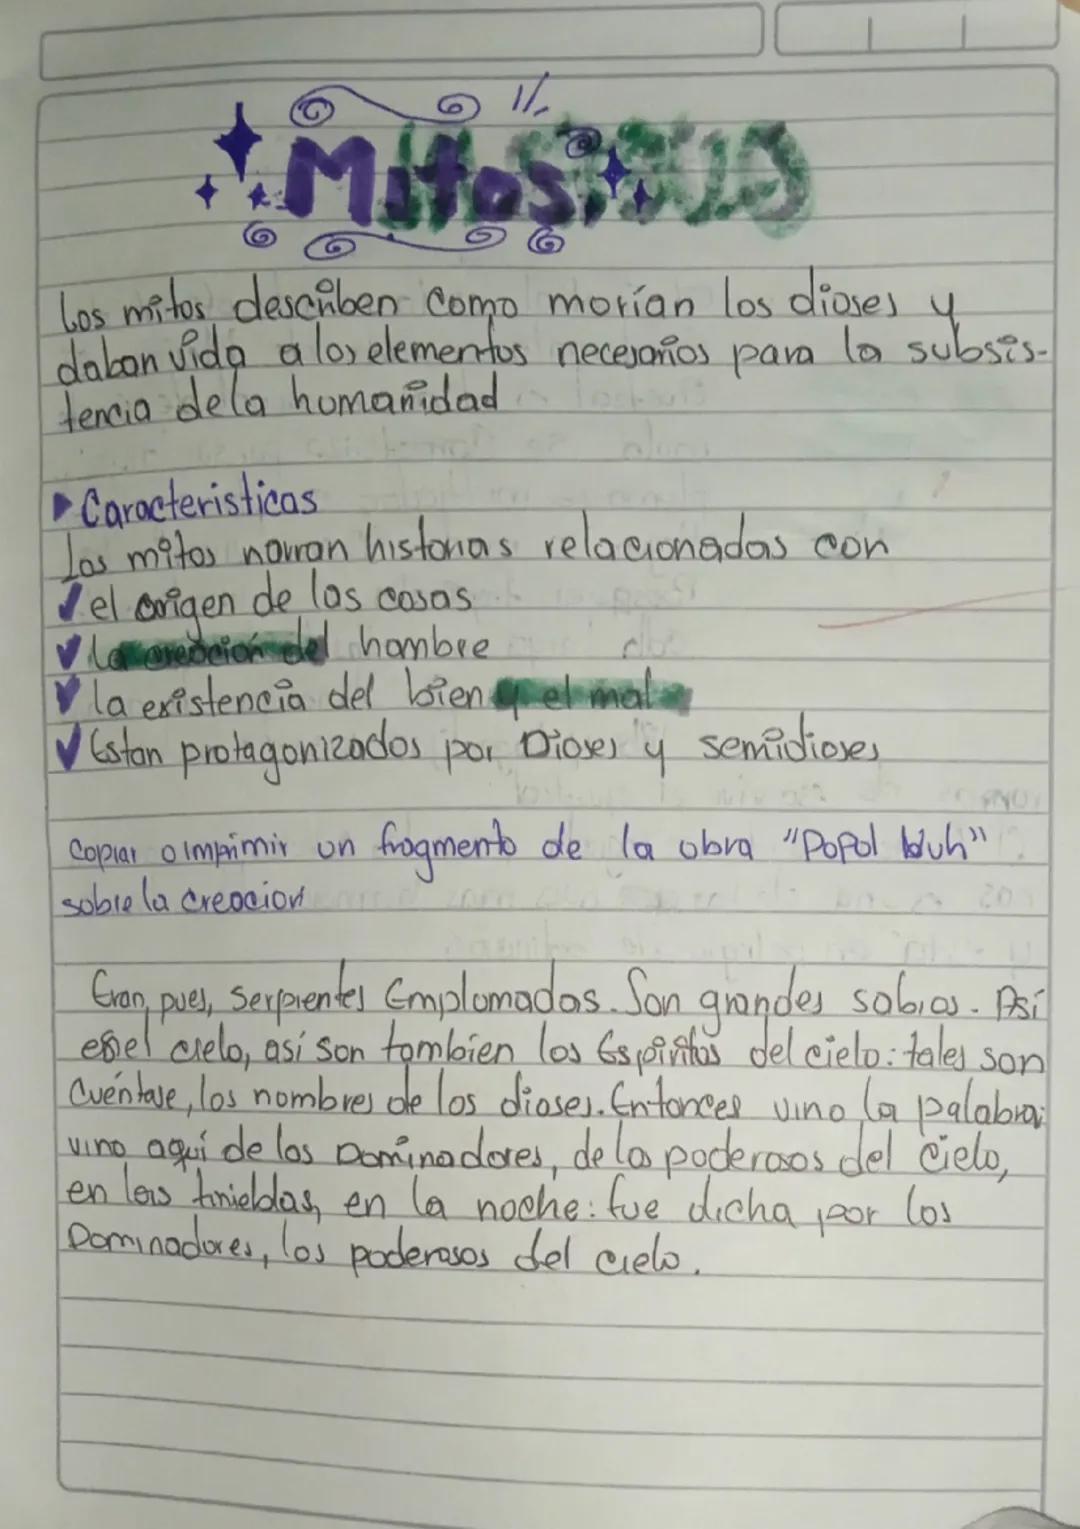 Mitos
Los mitos describen como morían los dioses y
daban vida a los elementos necesarios para la subsis-
tencia de la humanidad
Caracteristicas
Los mitos narran historias relacionadas con
el origen de las cosas
la creación del hombre
la existencia del bien y el mal
Estan protagonizados por Dioses y semidioses
Copiar o imprimir un fragmento de la obra "Popol Wuh"
sobre la creacion
Eran, pues, Serpientes Emplomadas. Son grandes sabios. Así
es el cielo, así son tambien los Espiritus del cielo: tales son
Cuéntase, los nombres de los dioses. Entonces vino la palabra;
vino aquí de los Dominadores, de los poderosos del Cielo,
en las tinieblas, en la noche: fue dicha por los
Dominadores, los poderosos del cielo.